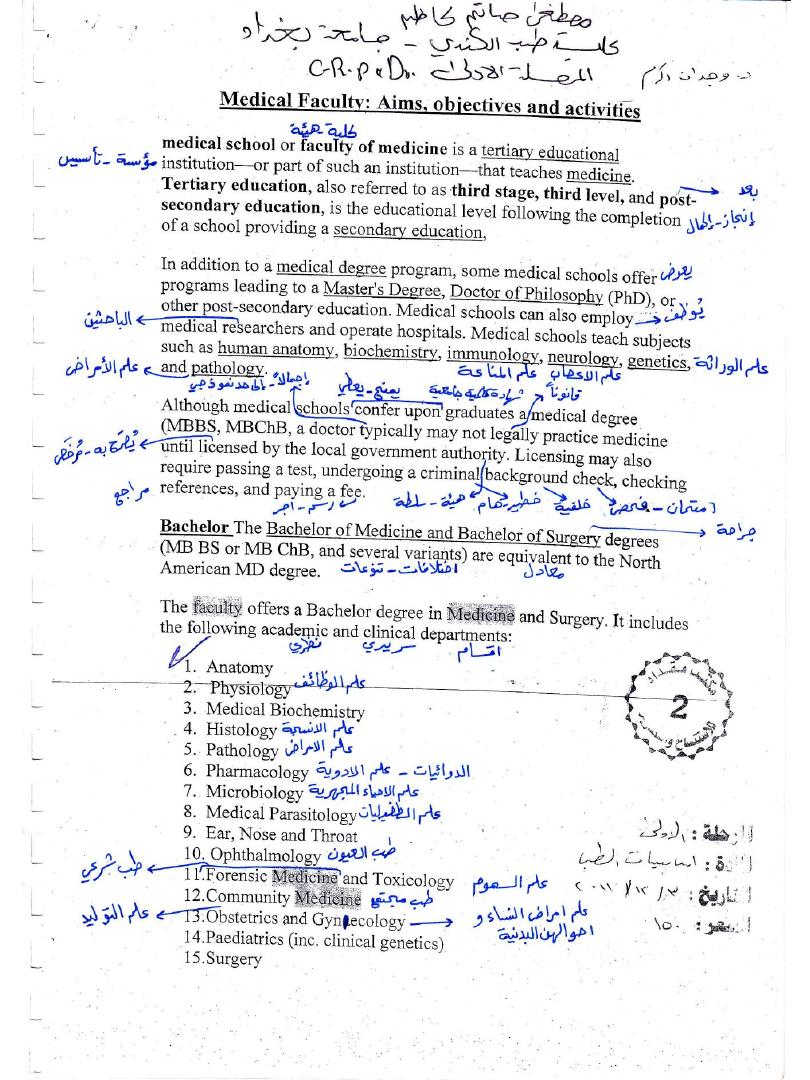 مصطفى صائم كاظم
كلية طب الكندي - جامعة بغداد
المرحلة الاولى
د. وجدان اكرم
Medical Faculty: Aims, objectives and activities
كلية - هيئة
medical school or faculty of medicine is a tertiary educational
institution—or part of such an institution—that teaches medicine. مؤسسة - تأسيس
Tertiary education, also referred to as third stage, third level, and post- بعد
secondary education, is the educational level following the completion إنجاز - إكمال
of a school providing a secondary education,
In addition to a medical degree program, some medical schools offer يعرض
programs leading to a Master's Degree, Doctor of Philosophy (PhD), or
other post-secondary education. Medical schools can also employ يُوظف
medical researchers and operate hospitals. Medical schools teach subjects الباحثين
such as human anatomy, biochemistry, immunology, neurology, genetics, علم الوراثة
علم المناعة علم الاعصاب
and pathology. علم الأمراض
يمنح - يعطي شهادة كلية جامعية قانوناً
Although medical schools confer upon graduates a medical degree
(MBBS, MBChB, a doctor typically may not legally practice medicine
until licensed by the local government authority. Licensing may also يُصرح به - مُرخص
require passing a test, undergoing a criminal background check, checking
references, and paying a fee. مراجع
رسم - اجر هيئة - سلطة خلفية امتحان - فحص
Bachelor The Bachelor of Medicine and Bachelor of Surgery degrees جراحة
(MB BS or MB ChB, and several variants) are equivalent to the North
American MD degree. اختلافات - تنوعات معادل
The faculty offers a Bachelor degree in Medicine and Surgery. It includes
the following academic and clinical departments:
نظري سريري اقسام
1. Anatomy
2. Physiology علم الوظائف
3. Medical Biochemistry
4. Histology علم الانسجة
5. Pathology علم الامراض
6. Pharmacology الدوائيات - علم الادوية
7. Microbiology علم الاحياء المجهرية
8. Medical Parasitology علم الطفيليات
9. Ear, Nose and Throat
10. Ophthalmology طب العيون
11.Forensic Medicine and Toxicology علم السموم طب شرعي
12.Community Medicine طب مجتمع
13.Obstetrics and Gynecology علم امراض النساء و علم التوليد
احوالهن البدنية
14.Paediatrics (inc. clinical genetics)
15.Surgery
2
المرحلة : الاولى
المادة : اساسيات الطب
التاريخ :
السعر : ١٥٠